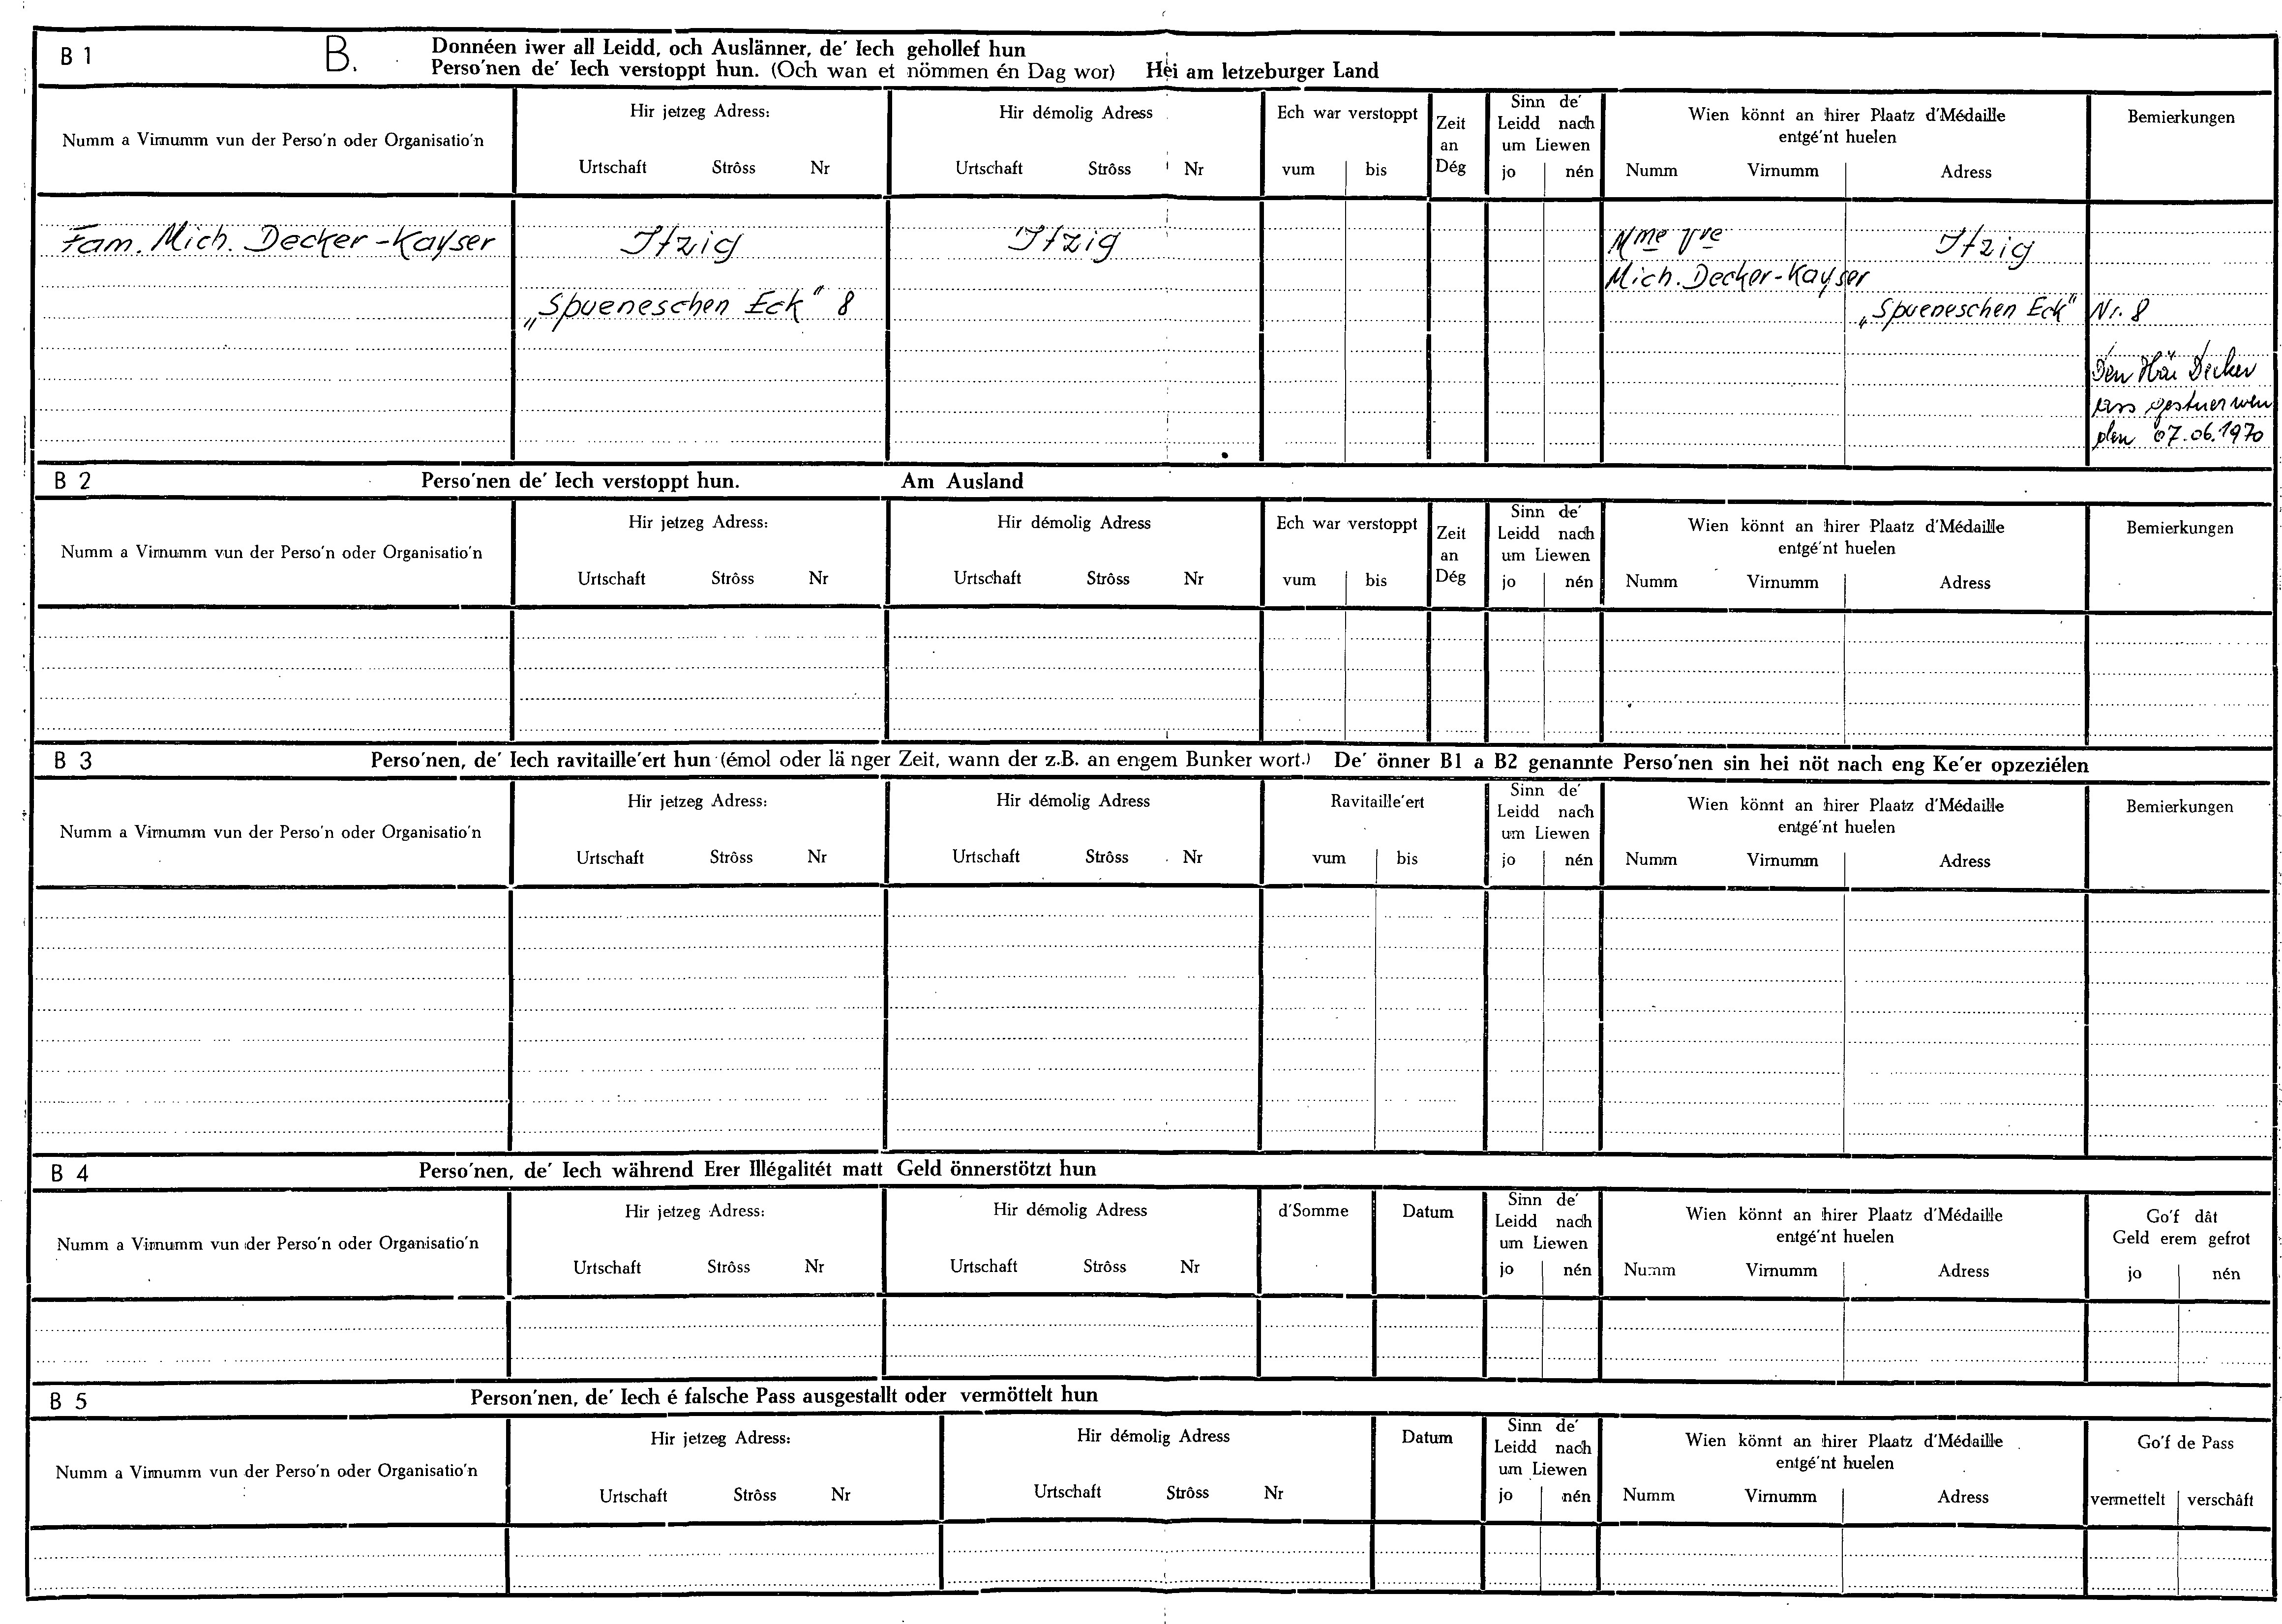 B 1 B. Donnéen iwer all Leidd, och Auslänner, de' Iech gehollef hun
Perso'nen de' Iech verstoppt hun. (Och wan et nömmen én Dag wor) Hei am letzeburger Land
Numm a Virnumm vun der Perso'n oder Organisatio'n
Hir jetzeg Adress:
Urtschaft Strôss Nr
Hir démolig Adress
Urtschaft Strôss Nr
Ech war verstoppt
vum bis
Zeit
an
Dég
Sinn de'
Leidd nach
um Liewen
jo nén
Wien könnt an hirer Plaatz d'Médaille
entgé'nt huelen
Numm Virnumm Adress
Bemierkungen
Fam. Mich. Decker-Kayser Itzig Itzig Mme Vve Itzig
Mich. Decker-Kayser
„Spueneschen Eck" 8 „Spueneschen Eck" Nr. 8
Den Här Decker
ass gestuerwen
den 07.06.1970
B 2 Perso'nen de' Iech verstoppt hun. Am Ausland
Numm a Virnumm vun der Perso'n oder Organisatio'n
Hir jetzeg Adress:
Urtschaft Strôss Nr
Hir démolig Adress
Urtschaft Strôss Nr
Ech war verstoppt
vum bis
Zeit
an
Dég
Sinn de'
Leidd nach
um Liewen
jo nén
Wien könnt an hirer Plaatz d'Médaille
entgé'nt huelen
Numm Virnumm Adress
Bemierkungen
B 3 Perso'nen, de' Iech ravitaille'ert hun (émol oder länger Zeit, wann der z.B. an engem Bunker wort.) De' önner B1 a B2 genannte Perso'nen sin hei nöt nach eng Ke'er opzeziélen
Numm a Virnumm vun der Perso'n oder Organisatio'n
Hir jetzeg Adress:
Urtschaft Strôss Nr
Hir démolig Adress
Urtschaft Strôss Nr
Ravitaille'ert
vum bis
Sinn de'
Leidd nach
um Liewen
jo nén
Wien könnt an hirer Plaatz d'Médaille
entgé'nt huelen
Numm Virnumm Adress
Bemierkungen
B 4 Perso'nen, de' Iech während Erer Illégalitét matt Geld önnerstötzt hun
Numm a Virnumm vun der Perso'n oder Organisatio'n
Hir jetzeg Adress:
Urtschaft Strôss Nr
Hir démolig Adress
Urtschaft Strôss Nr
d'Somme
Datum
Sinn de'
Leidd nach
um Liewen
jo nén
Wien könnt an hirer Plaatz d'Médaille
entgé'nt huelen
Numm Virnumm Adress
Go'f dât
Geld erem gefrot
jo nén
B 5 Person'nen, de' Iech é falsche Pass ausgestallt oder vermöttelt hun
Numm a Virnumm vun der Perso'n oder Organisatio'n
Hir jetzeg Adress:
Urtschaft Strôss Nr
Hir démolig Adress
Urtschaft Strôss Nr
Datum
Sinn de'
Leidd nach
um Liewen
jo nén
Wien könnt an hirer Plaatz d'Médaille
entgé'nt huelen
Numm Virnumm Adress
Go'f de Pass
vermettelt verschâft